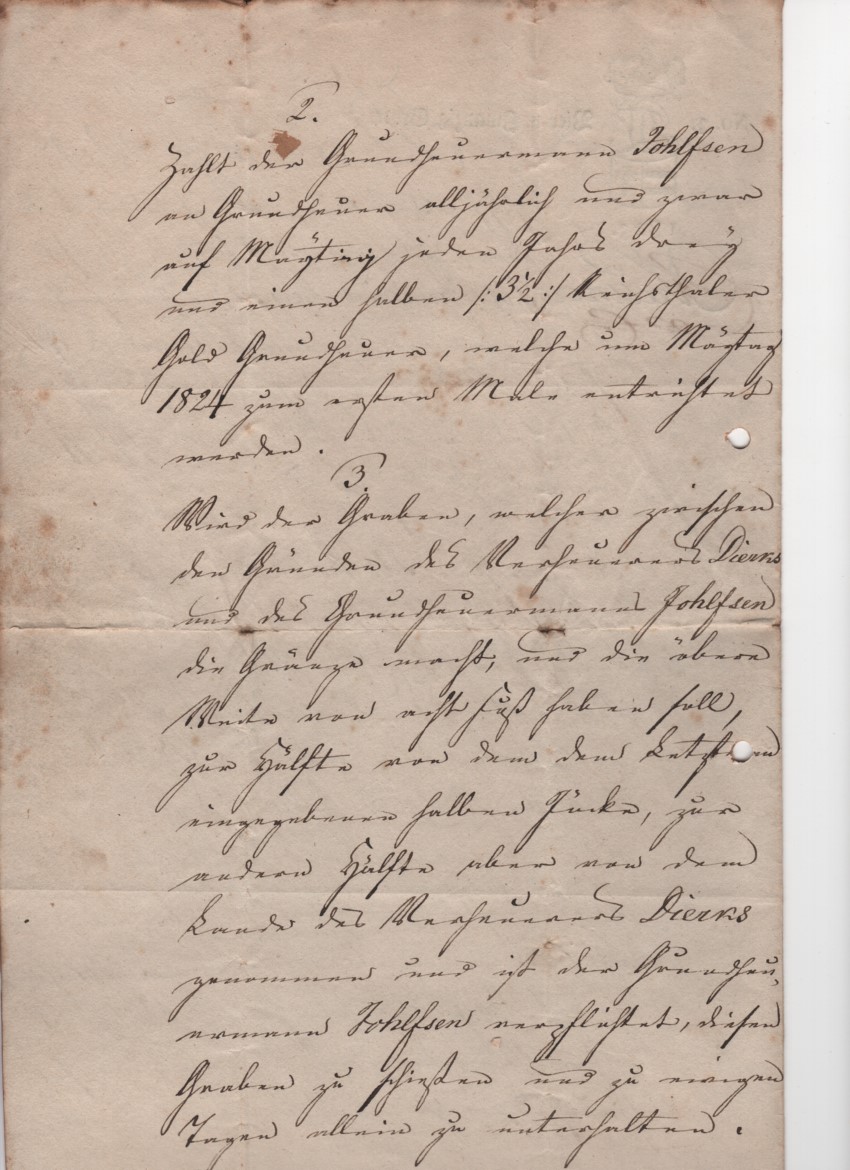 2.
Zahlt der Grundheuermann Johlfsen
an Grundheuer alljährlich und zwar
auf Maÿtag jeden Jahrs dreÿ
und einen halben /: 3½ :/ Reichsthaler
Gold Grundheuer, welche um Maÿtag
1824 zum ersten Male entrichtet
werden.
3.
Wird der Graben, welcher zwischen
den Gründen des Verheuerers Dierks
und des Grundheuermanns Johlfsen
die Gränze macht, und die obere
Weite von acht Fuß haben soll,
zur Hälfte von dem dem
eingegebenen halben Jücke, zur
andern Hälfte aber von dem
Lande des Verheuerers Dierks
genommen und ist der Grundheu-
ermann Johlfsen verpflichtet, diesen
Graben zu schießen und zu ewigen
Tagen allein zu unterhalten.